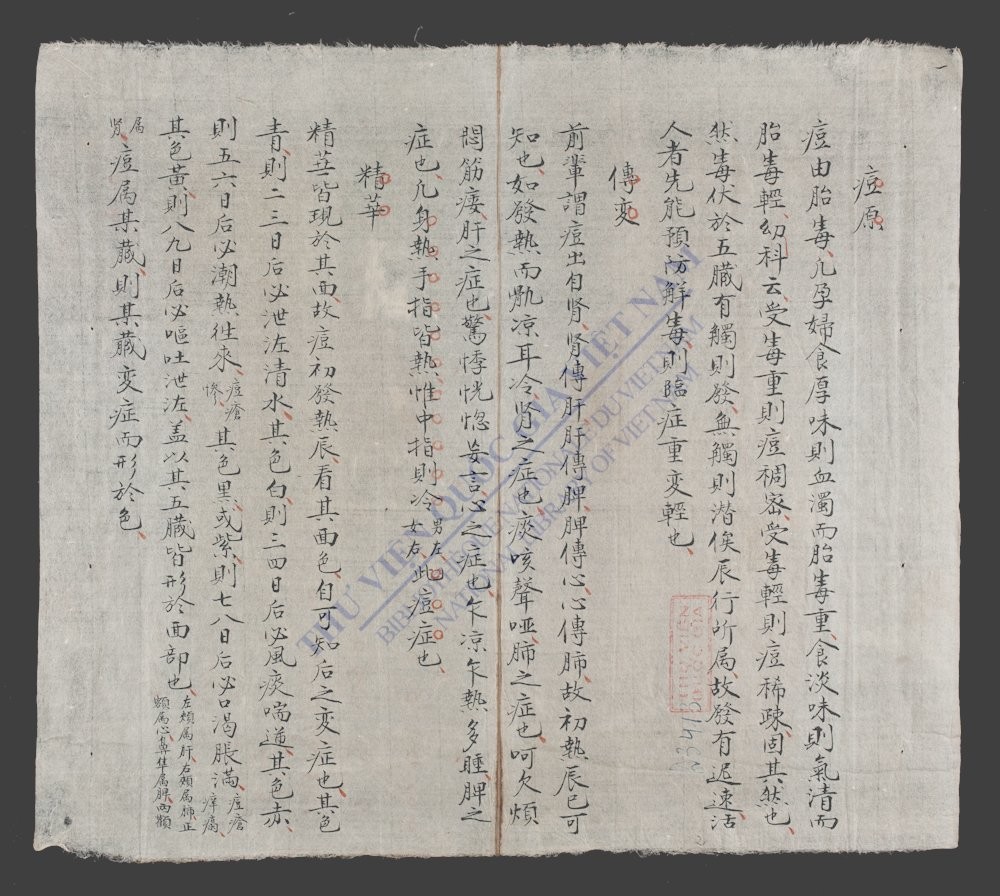 痘原
痘由胎毒、凡孕婦食厚味則血濁而胎毒重、食淡味則氣清而
胎毒輕、幼科云、受毒重則痘稠密、受毒輕則痘稀疎、固其然也、
然毒伏於五臟、有觸則發、無觸則潛俟辰行所属、故發有迟速、活
人者先能預防解毒、則臨症重变輕也、
傳变
前輩謂痘出自肾、肾傳肝、肝傳脾、脾傳心、心傳肺、故初熱辰已可
知也、如發熱而骩凉耳冷、肾之症也、痰咳聲啞、肺之症也、呵欠煩
悶筋痿、肝之症也、驚悸恍惚妄言、心之症也、乍凉乍熱多睡、脾之
症也、凡身熱手指皆熱、惟中指則冷男左女右、此痘症也、
精華
精華皆現於其面、故痘初發熱辰、看其面色、自可知后之变症也、其色
青、則二三日后必泄泻清水、其色白、則三四日后必風痰喘逆、其色赤、
則五六日后必潮熱往來、痘瘡惨、其色黑、或紫、則七八日后必口渴脹滿、痘瘡痒痛
其色黄、則八九日后必嘔吐泄泻、盖以其五臟皆形於面部也、左頰属肝、右頰属肺、正額属心、鼻隼属脾、两顴
属肾、痘属某藏、則某藏变症而形於色、
THƯ VIỆN QUỐC GIA VIỆT NAM
BIBLIOTHEQUE NATIONALE DU VIETNAM
NATIONAL LIBRARY OF VIETNAM